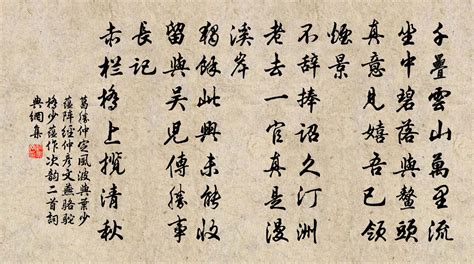 千疊雲山萬里流
坐中碧落與鰲頭
真意見嬉吾已領
煙景
不辭捧詔久汀洲
老去一官真是漫
溪岸
獨餘此興未能收
留與吳兒傳勝事
長記
赤欄橋上攬清秋
葛勝仲定風波與葉少
蘊陳經仲彥文燕駱駝
橋少蘊作次韻二首詞
典網集